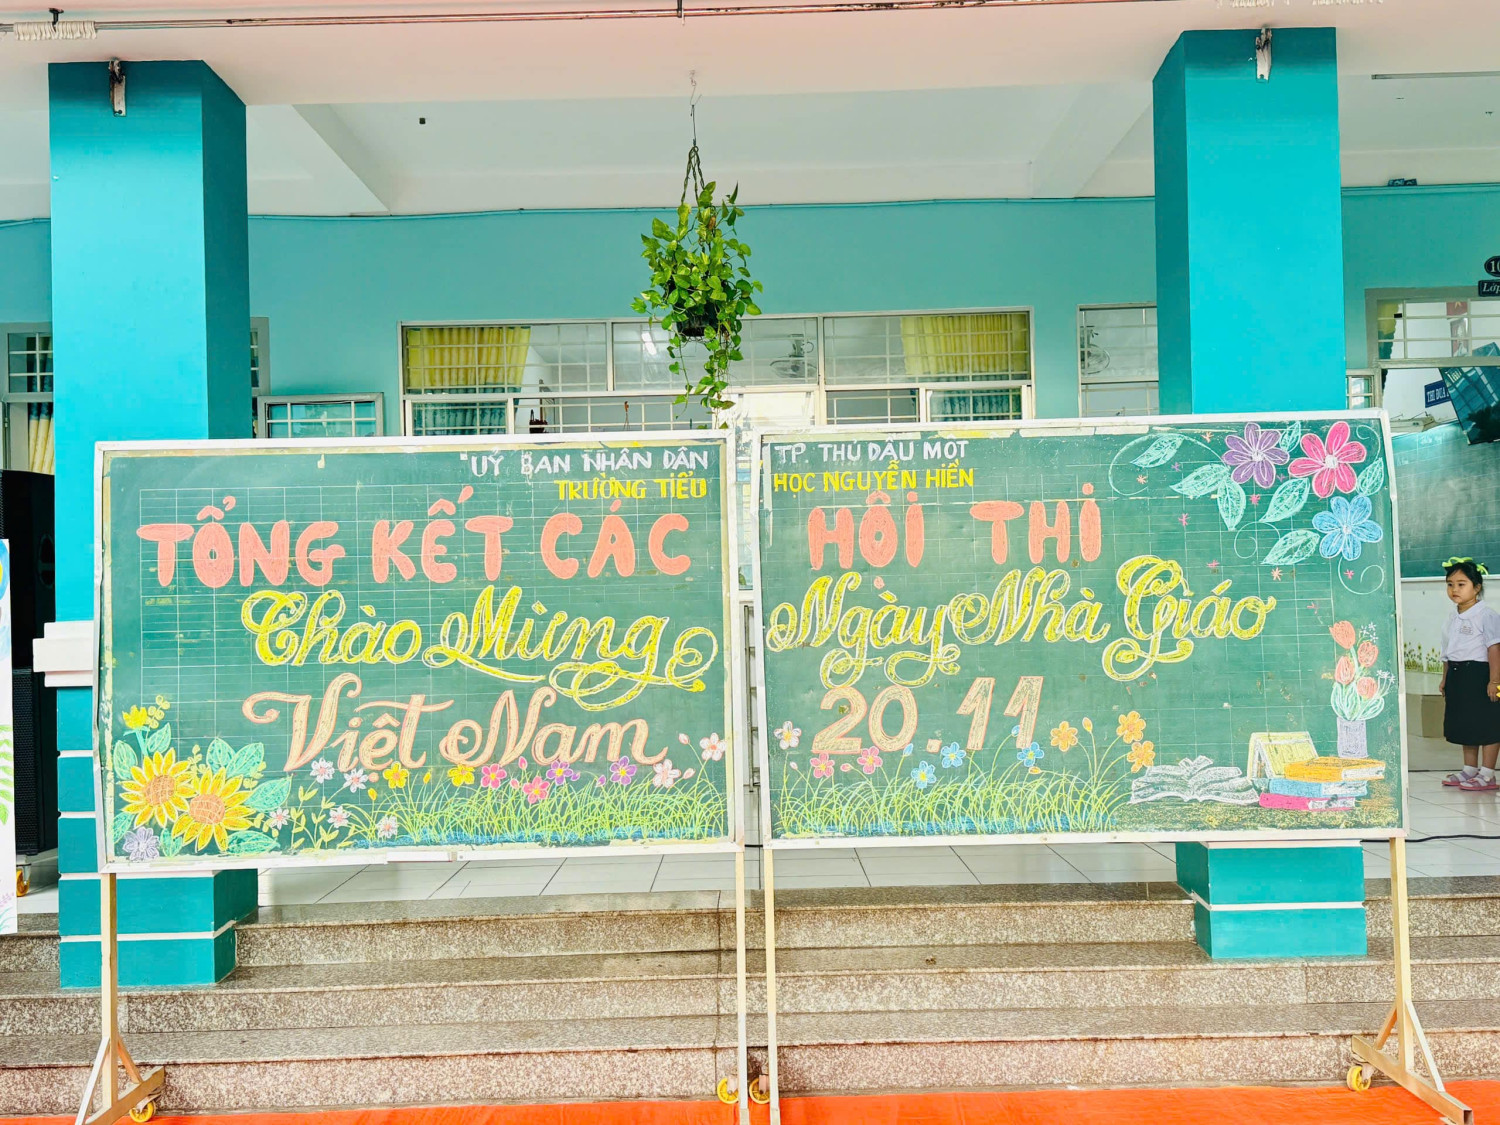 UỶ BAN NHÂN DÂN TP. THỦ DẦU MỘT
TRƯỜNG TIỂU HỌC NGUYỄN HIỀN
TỔNG KẾT CÁC HỘI THI
Chào Mừng Ngày Nhà Giáo
Việt Nam 20.11
10
Lớp
THI ĐUA